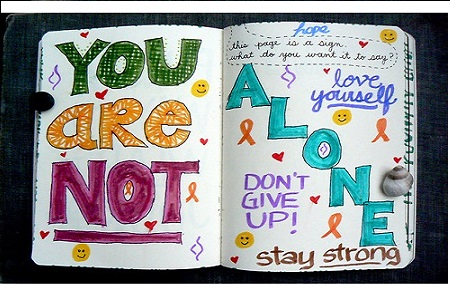 YOU
are
NOT
hope
this page is a sign
what do you want it to say?
love
yourself
ALONE
DON'T
GIVE
UP!
stay strong